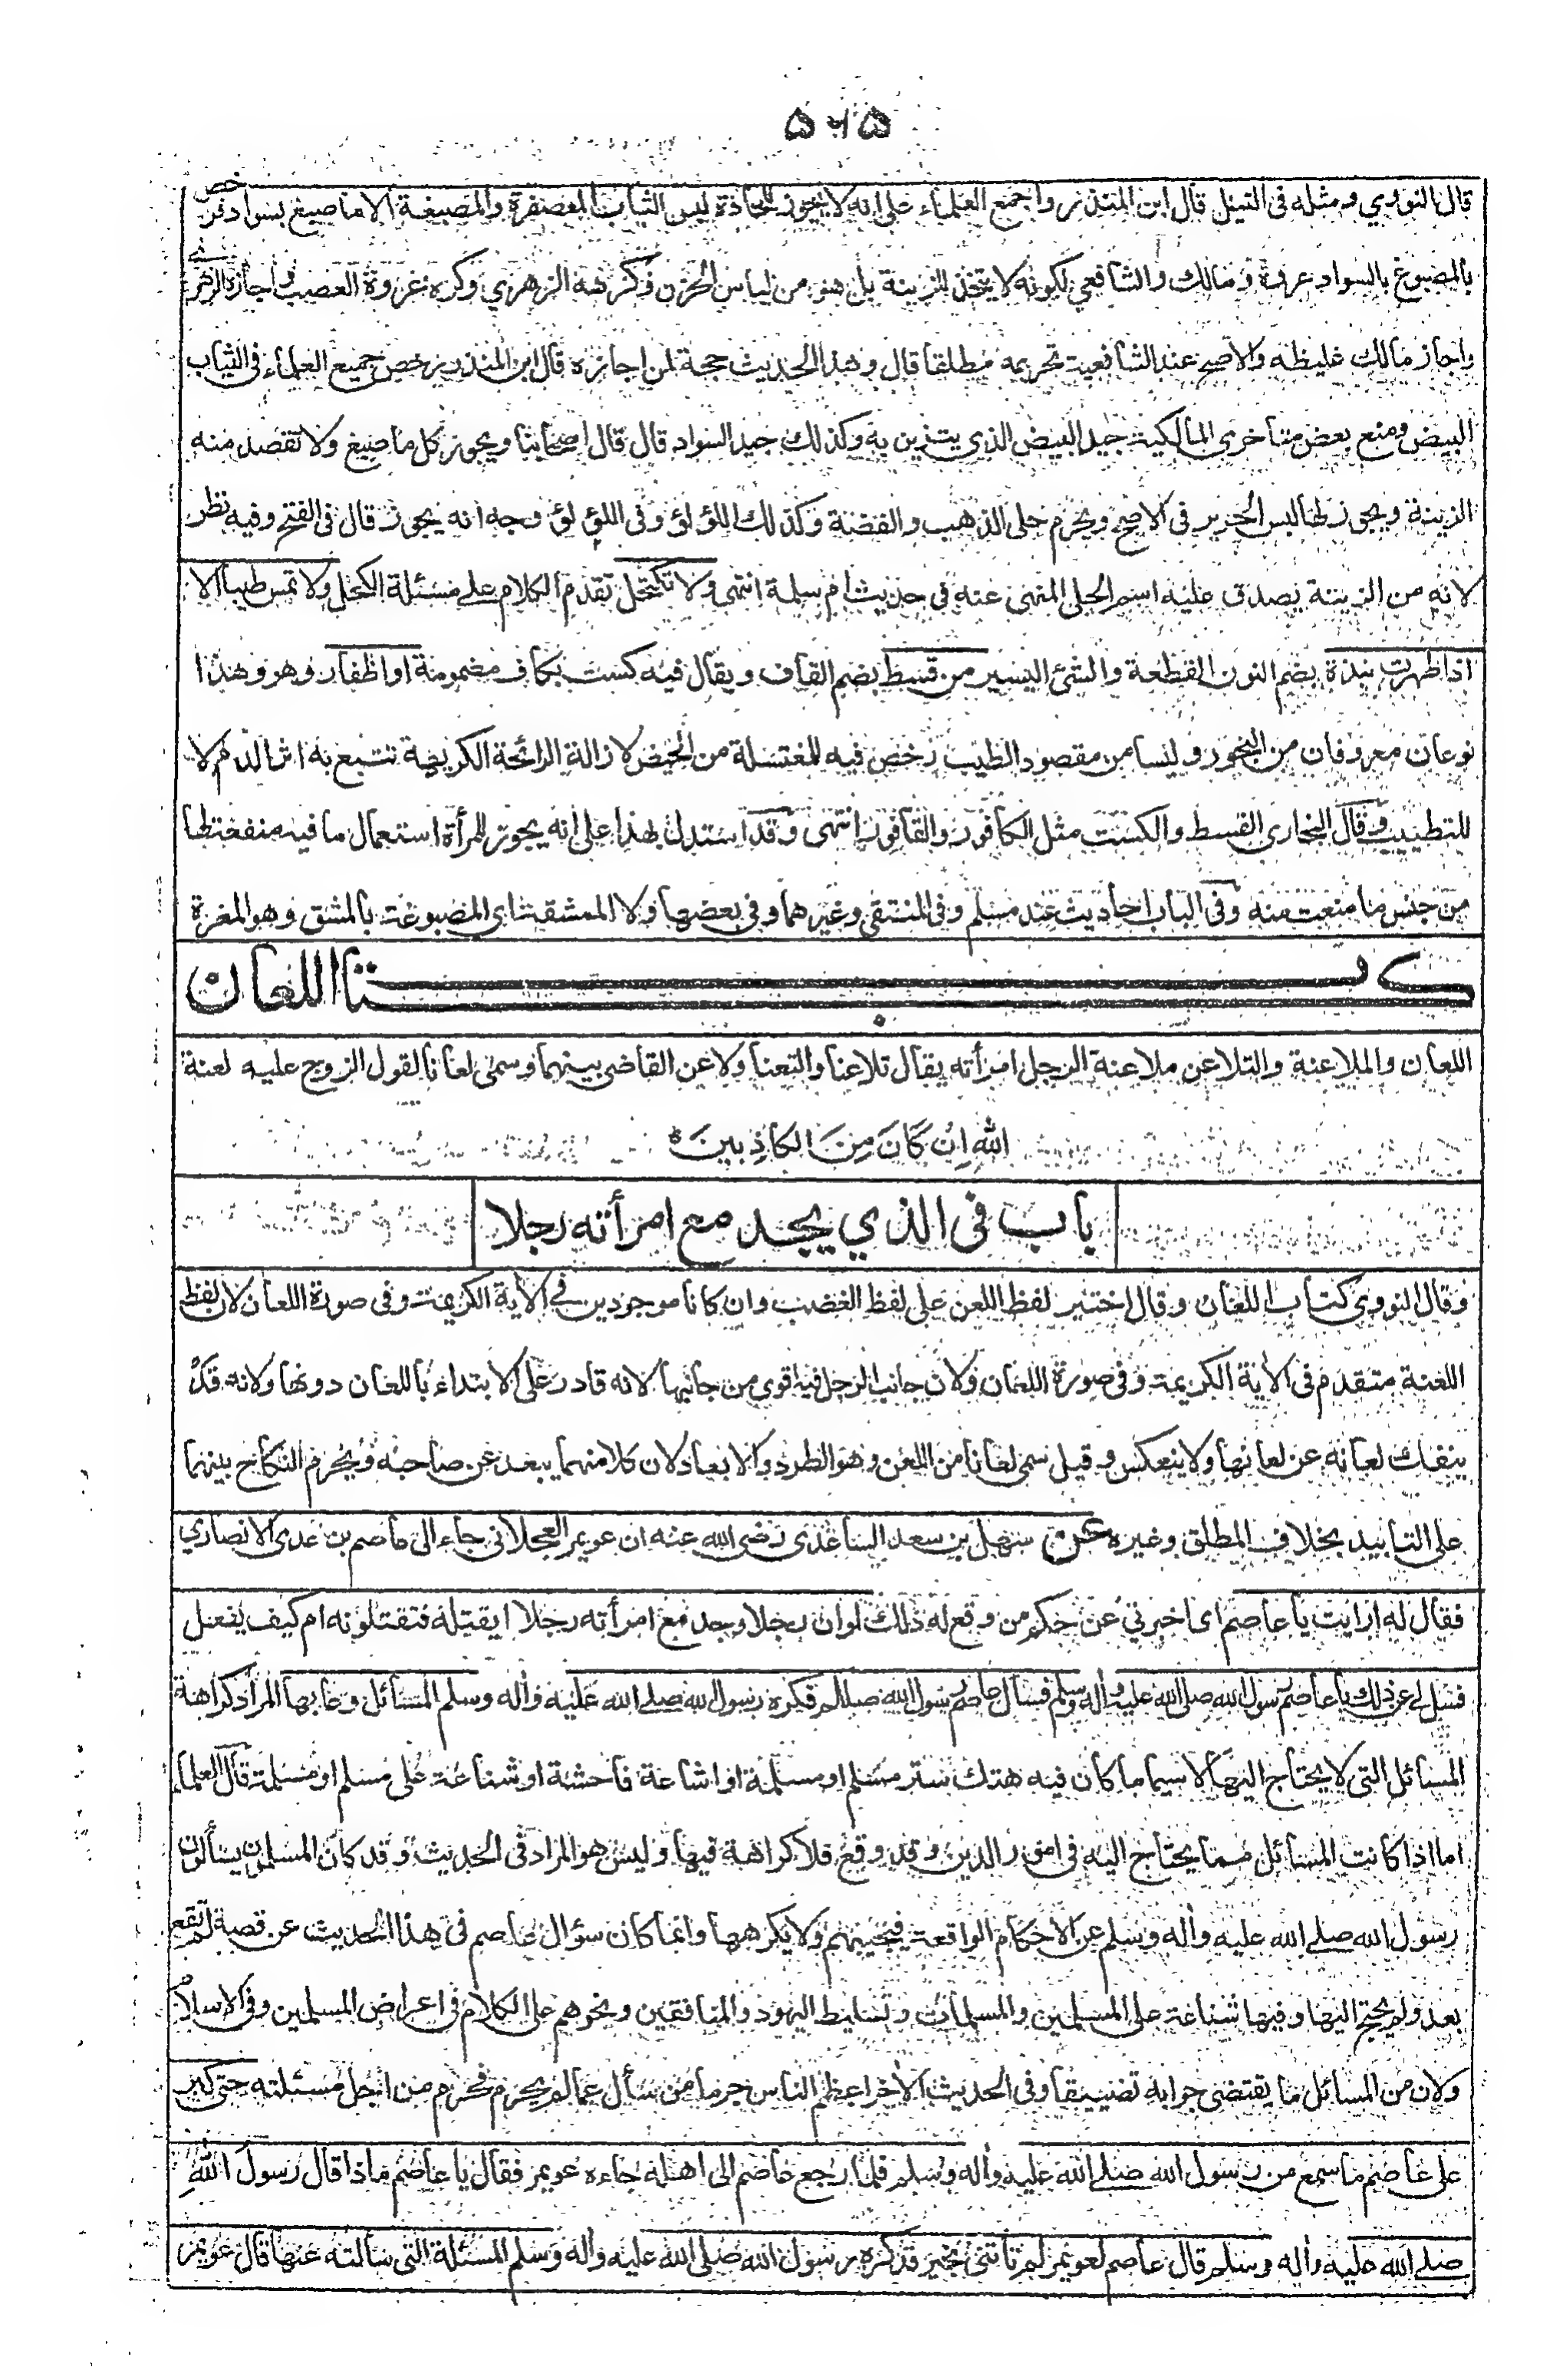 ۵۶۵
قال النووي ومثله في النيل قال ابن المنذر واجمع العلماء على انه لا يجوز للحادة لبس الثياب المعصفرة والمصبغة الا ما صبغ بسواد فرخص
بالمصبوغ بالسواد عروة ومالك والشافعي لكونه لا يتخذ للزينة بل هو من لباس الحزن وكرهه الزهري وكره عروة العصب واجازه الزهري
واجاز مالك غليظه والاصح عند الشافعية تحريمه مطلقا قال وهذا الحديث حجة لمن اجازه قال ابن المنذر رخص جميع العلماء في الثياب
البيض ومنع بعض متأخرى المالكية جيد البيض الذى يتزين به وكذلك جيد السواد قال قال اصحابنا ويجوز كل ما صبغ ولا تقصد منه
الزينة ويجوز لها لبس الحرير في الاصح ويحرم حلى الذهب والفضة وكذلك اللؤلؤ وفى اللؤلؤ وجه انه يجوز قال فى الفتح وفيه نظر
لانه من الزينة يصدق عليه اسم الحلى المنهى عنه فى حديث ام سلمة انتهى ولا تكتحل تقدم الكلام على مسئلة الكحل ولا تمس طيبا الا
اذا طهرت نبذة بضم النون القطعة والشئ اليسير من قسط بضم القاف ويقال فيه كست بكاف مضمومة او اظفار وهو وهذا
نوعان معروفان من البخور وليسا من مقصود الطيب رخص فيه للمغتسلة من الحيض لازالة الرائحة الكريهة تتبع به اثر الدم لا
للتطيب وقال البخارى القسط والكست مثل الكافور والقافور انتهى وقد استدل بهذا على انه يجوز للمرأة استعمال ما فيه منفعة لها
من جنس ما منعت منه وفى الباب احاديث عند مسلم وفى المنتقى وغيرهما وفى بعضها ولا الممشقة اى المصبوغة بالمشق وهو المغرة
كتاب اللعان
اللعان والملاعنة والتلاعن ملاعنة الرجل امرأته يقال تلاعنا والتعنا ولاعن القاضى بينهما وسمى لعانا لقول الزوج عليه لعنة
الله اِن كَانَ مِنَ الكَاذِبينَ ؕ
باب فى الذي يجد مع امرأته رجلا
وقال النووى كتاب اللعان وقال اختير لفظ اللعن على لفظ الغضب وان كانا موجودين في الاية الكريمة وفى صورة اللعان لان لفظ
اللعنة متقدم فى الأية الكريمة وفى صورة اللعان ولان جانب الرجل فيه اقوى من جانبها لانه قادر على الابتداء باللعان دونها ولانه قد
ينفك لعانه عن لعانها ولا ينعكس وقيل سمى لعانا من اللعن وهو الطرد والابعاد لان كلا منهما يبعد عن صاحبه ويحرم النكاح بينهما
على التابيد بخلاف المطلق وغيره عن سهل بن سعد الساعدى رضى الله عنه ان عويمر العجلانى جاء الى عاصم بن عدى الانصاري
فقال له ارايت يا عاصم اى اخبرني عن حكم من وقع له ذلك لو ان رجلا وجد مع امرأته رجلا ايقتله فتقتلونه ام كيف يفعل
فسل لى عن ذلك يا عاصم رسول الله صلى الله عليه واٰله وسلم فسأل عاصم رسول الله صلى الله فكره رسول الله صلے الله عليه واٰله وسلم المسائل وعابها المراد كراهة
المسائل التى لا يحتاج اليها لا سيما ما كان فيه هتك ستر مسلم او مسلمة او اشاعة فاحشة او شناعة على مسلم او مسلمة قال العلماء
اما اذا كانت المسائل مما يحتاج اليه فى امور الدين وقد وقع فلا كراهة فيها وليس هو المراد فى الحديث وقد كان المسلمون يسألون
رسول الله صلے الله عليه واٰله وسلم عن الاحكام الواقعة فيجيبهم ولا يكرهها وانما كان سؤال عاصم فى هذا الحديث عن قصة لم تقع
بعد ولم يحتج اليها وفيها شناعة على المسلمين والمسلمات وتسليط اليهود والمنافقين ونحوهم على الكلام فى اعراض المسلمين وفى الاسلام
ولان من المسائل ما يقتضى جوابه تضييقا وفى الحديث الأخر اعظم الناس جرما من سأل عما لم يحرم فحرم من اجل مسئلته حتى كبر
على عاصم ما سمع من رسول الله صلے الله عليه واٰله وسلم فلما رجع عاصم الى اهله جاءه عويمر فقال يا عاصم ماذا قال رسول الله
صلے الله عليه واٰله وسلم قال عاصم لعويمر لم تأتنى بخير قد كره رسول الله صلى الله عليه واٰله وسلم المسئلة التى سألته عنها قال عويمر